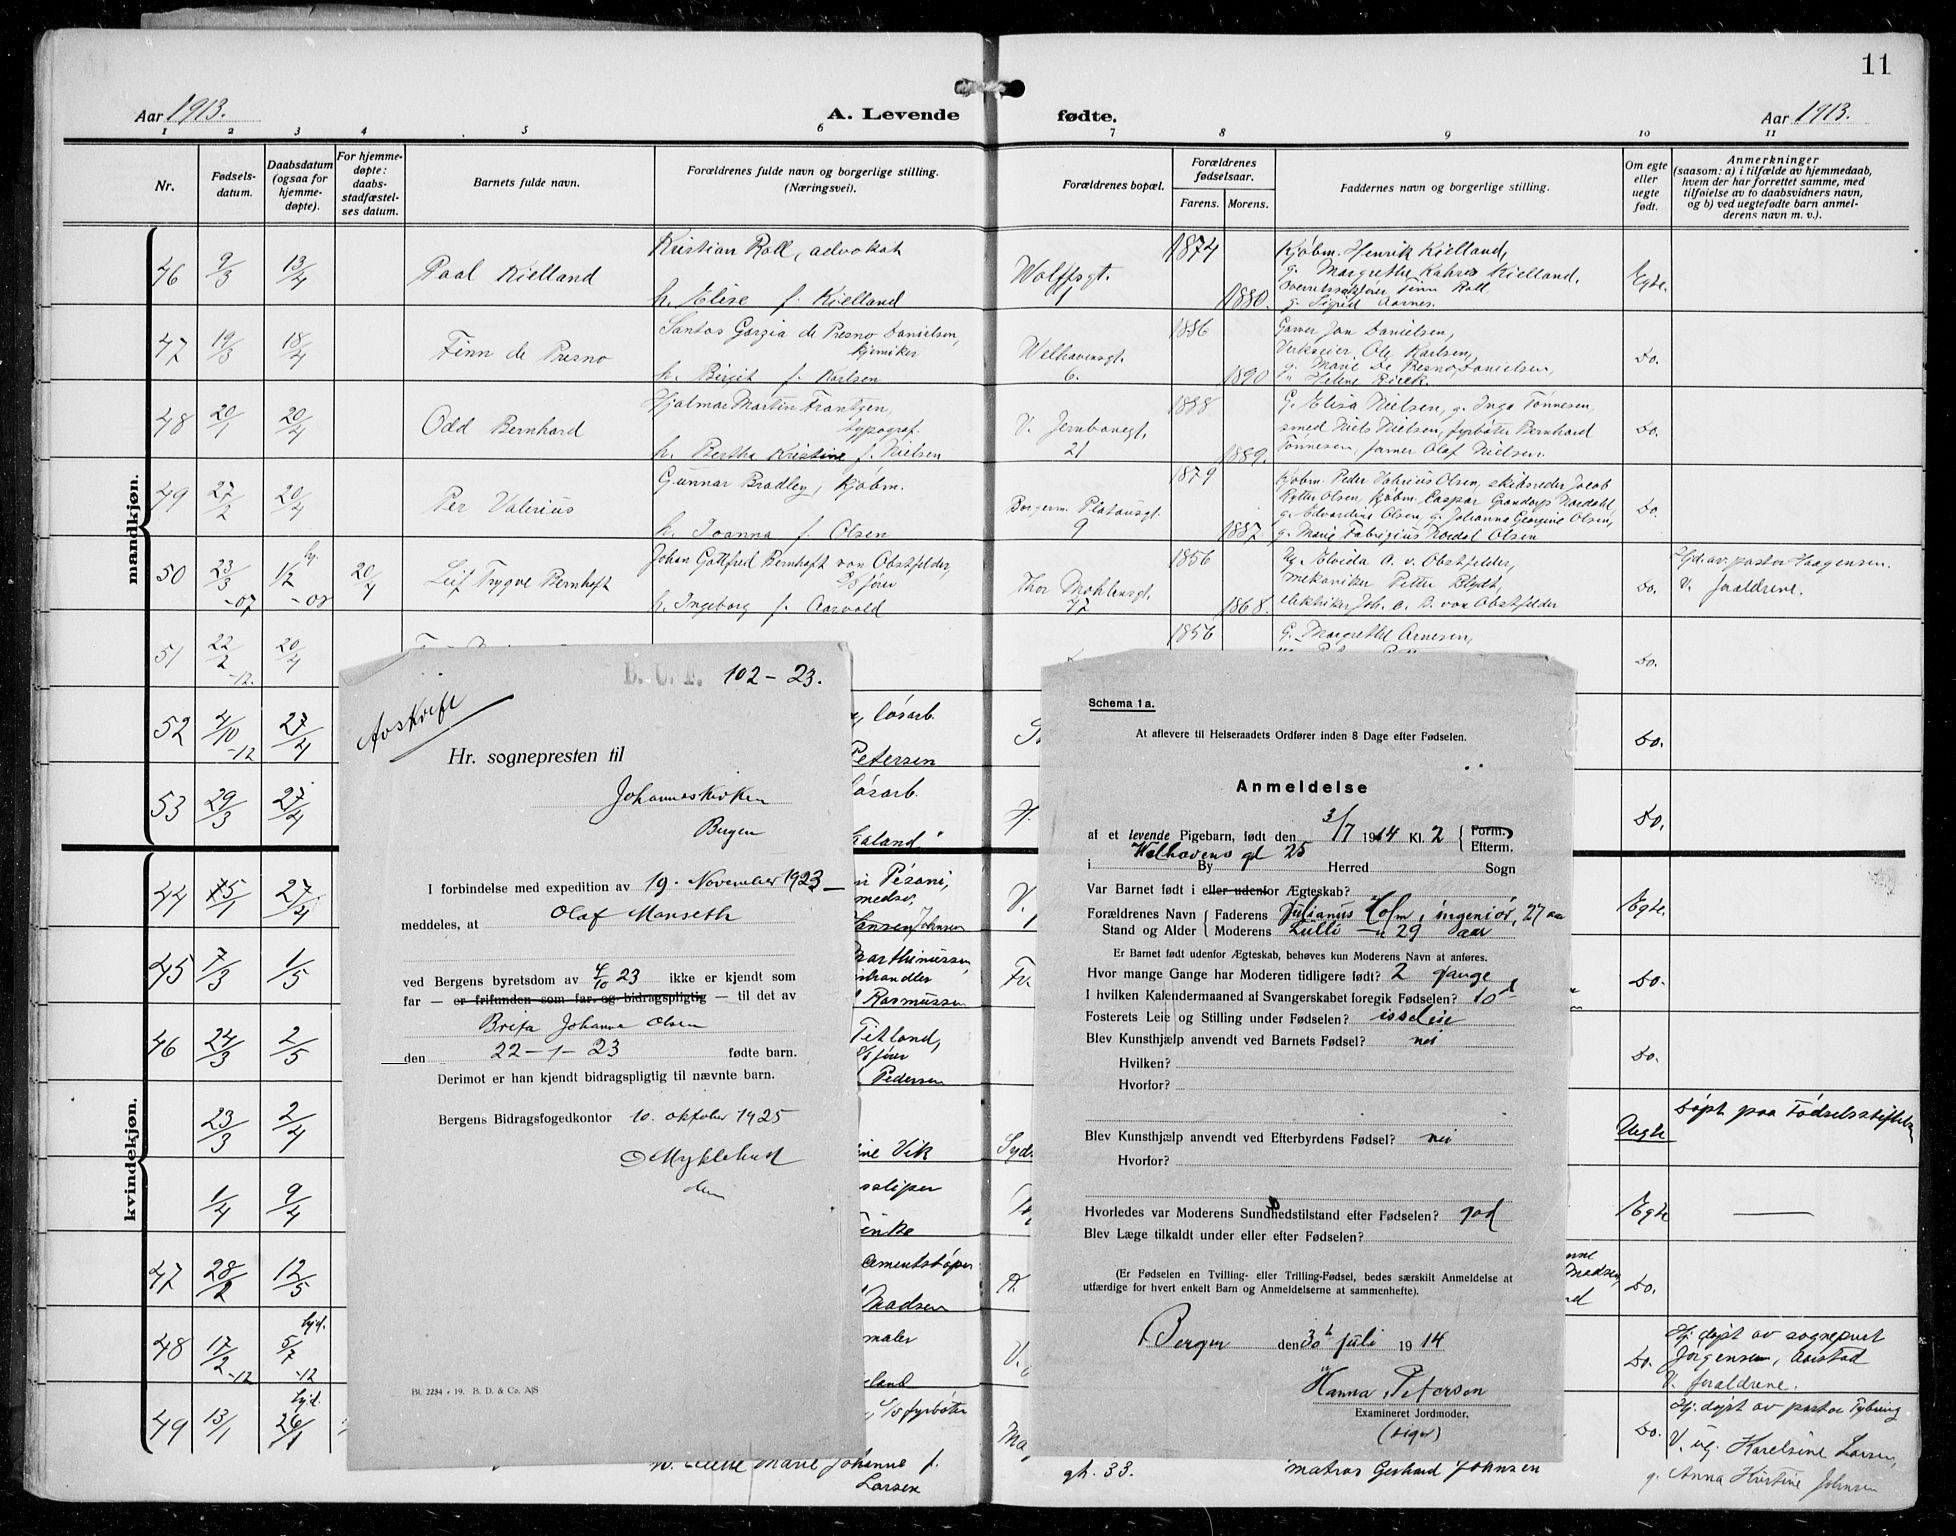 11
Aar 1913.
A. Levende fødte.
Aar 1913.
1 2 3 4 5 6 7 8 9 10 11
Nr.
Fødselsdatum.
Daabsdatum (ogsaa for hjemmedøpte).
For hjemmedøpte: daabsstadfæstelses datum.
Barnets fulde navn.
Forældrenes fulde navn og borgerlige stilling.
(Næringsvei).
Forældrenes bopæl.
Forældrenes fødselsaar.
Farens. Morens.
Faddernes navn og borgerlige stilling.
Om egte eller uegte født.
Anmerkninger
(saasom: a) i tilfælde av hjemmedaab,
hvem der har forrettet samme, med
tilføielse av to daabsvidners navn,
og b) ved uegtefødte barn anmelderens navn m. v.).
mandkjøn.
46 9/3 13/4 Paal Kielland
Kristian Roll, advokat
h. Elise f. Kielland
Wolffsgt. 1
1874 1880.
Kjøbm. Henrik Kielland,
g. Margrethe Kahrs Kielland,
Finn Roll
g. Sigrid Aarnes.
Egte.
47 19/3 18/4 Finn de Presno
Santos Gorgia de Presno Danielsen,
kjemiker
h. Birgit f. Karlsen
Welhavensgt. 6.
1886 1890
Garver Jan Danielsen,
Verkseier Ole Karlsen,
g. Marie De Presno Danielsen,
" Helene Rieck.
Do.
48 20/1 20/4 Odd Bernhard
Hjalmar Martin Frantzen,
typograf.
h. Bertha Kristine f. Nielsen
V. Jernbanegt. 21
1888 1889.
G. Elisa Nielsen, g. Inga Tønnesen,
smed Niels Nielsen, fyrbøter Bernhard
Tønnesen, former Olaf Nielsen.
Do.
49 27/2 20/4 Per Valerius
Gunnar Bradley, kjøbm.
h. Joanna f. Olsen
Borgerm. Platousgt. 9
1879 1887
Kjøbm. Peder Valerius Olsen, skibsreder Jacob
Rytter Olsen, kjøbm. Caspar Nordahl,
g. Edvardine Olsen, g. Johanna Georgine Olsen,
g. Marie Fabrigius Nordal Olsen
Do.
50 23/3 -07 hj. 1/2 -08 20/4 Leif Trygve Bernhoft
Johan Gottfred Bernhoft von Obstfelder,
h. Ingeborg f. Aarvold
Thor Møhlensgt. 47
1856 1868.
Ug. Elvida A. v. Obstfelder,
mekaniker Petter Blydt,
elektriker Joh. C. B. von Obstfelder
Do.
Hjd. av pastor Haagensen.
V. foraldrene.
51 22/2 -12. 20/4
1856
G. Margrethe Arnesen,
Do.
52 4/10 -12 27/4
løsarb.
Petersen
Do.
53 29/3 27/4
løsarb.
Do.
kvindekjøn.
44 27/4
Hansen
V.
Egte.
45 7/3 1/5
Rasmussen
Do.
46 24/3 2/5
Titland,
Pedersen
Do.
23/3 2/4
Vik
Uegte
Døpt paa Fødselsstiftelsen
1/4 9/4
Egte
47 28/2 12/5
cementstøper
Madsen
Madsen,
Do.
48 17/2 -12 hjd. 5/7 -12
maler
Do.
Hj. døpt av sogneprest
Jørgensen, Aarstad
V. foraldrene.
49 13/1 hjd.
fyrbøter
Marie Johanne f.
Larsen
33.
matros Gerhard Johnsen
Do.
Hj. døpt av pastor Tybring
V. ug. Karelsine Larsen,
g. Anna Kristine Johnsen
B. U. F. 102 - 23.
Avskrift
Hr. sognepresten til
Johanneskirken
Bergen
I forbindelse med expedition av 19. November 1923
meddeles, at Olaf Manseth
ved Bergens byretsdom av 4/10 23 ikke er kjendt som
far — er frifunden som far og bidragspligtig — til det av
Brita Johanne Olsen
den 22-1-23 fødte barn.
Derimot er han kjendt bidragspligtig til nævnte barn.
Bergens Bidragsfogedkontor 10. oktober 1925
Myklebust
Bl. 2234 - 19. B. D. & Co. A/S
Schema 1 a.
At aflevere til Helseraadets Ordfører inden 8 Dage efter Fødselen.
Anmeldelse
af et levende Pigebarn, født den 3/7 1914 Kl. 2 { Form. Efterm.
i Welhavens gt 25 By Herred Sogn
Var Barnet født i eller udenfor Ægteskab?
Forældrenes Navn Stand og Alder { Faderens Julianus Holm, ingeniør, 27 aar
Moderens Lulli 29 aar
Er Barnet født udenfor Ægteskab, behøves kun Moderens Navn at anføres.
Hvor mange Gange har Moderen tidligere født? 2 gange
I hvilken Kalendermaaned af Svangerskabet foregik Fødselen? 10d
Fosterets Leie og Stilling under Fødselen? isseleie
Blev Kunsthjælp anvendt ved Barnets Fødsel? nei
Hvilken?
Hvorfor?
Blev Kunsthjælp anvendt ved Efterbyrdens Fødsel? nei
Hvorfor?
Hvorledes var Moderens Sundhedstilstand efter Fødselen? god
Blev Læge tilkaldt under eller efter Fødselen?
(Er Fødselen en Tvilling- eller Trilling-Fødsel, bedes særskilt Anmeldelse at
utfærdige for hvert enkelt Barn og Anmeldelserne at sammenhefte).
Bergen den juli 1914
Hanna Petersen
Examineret Jordmoder.
(sign)